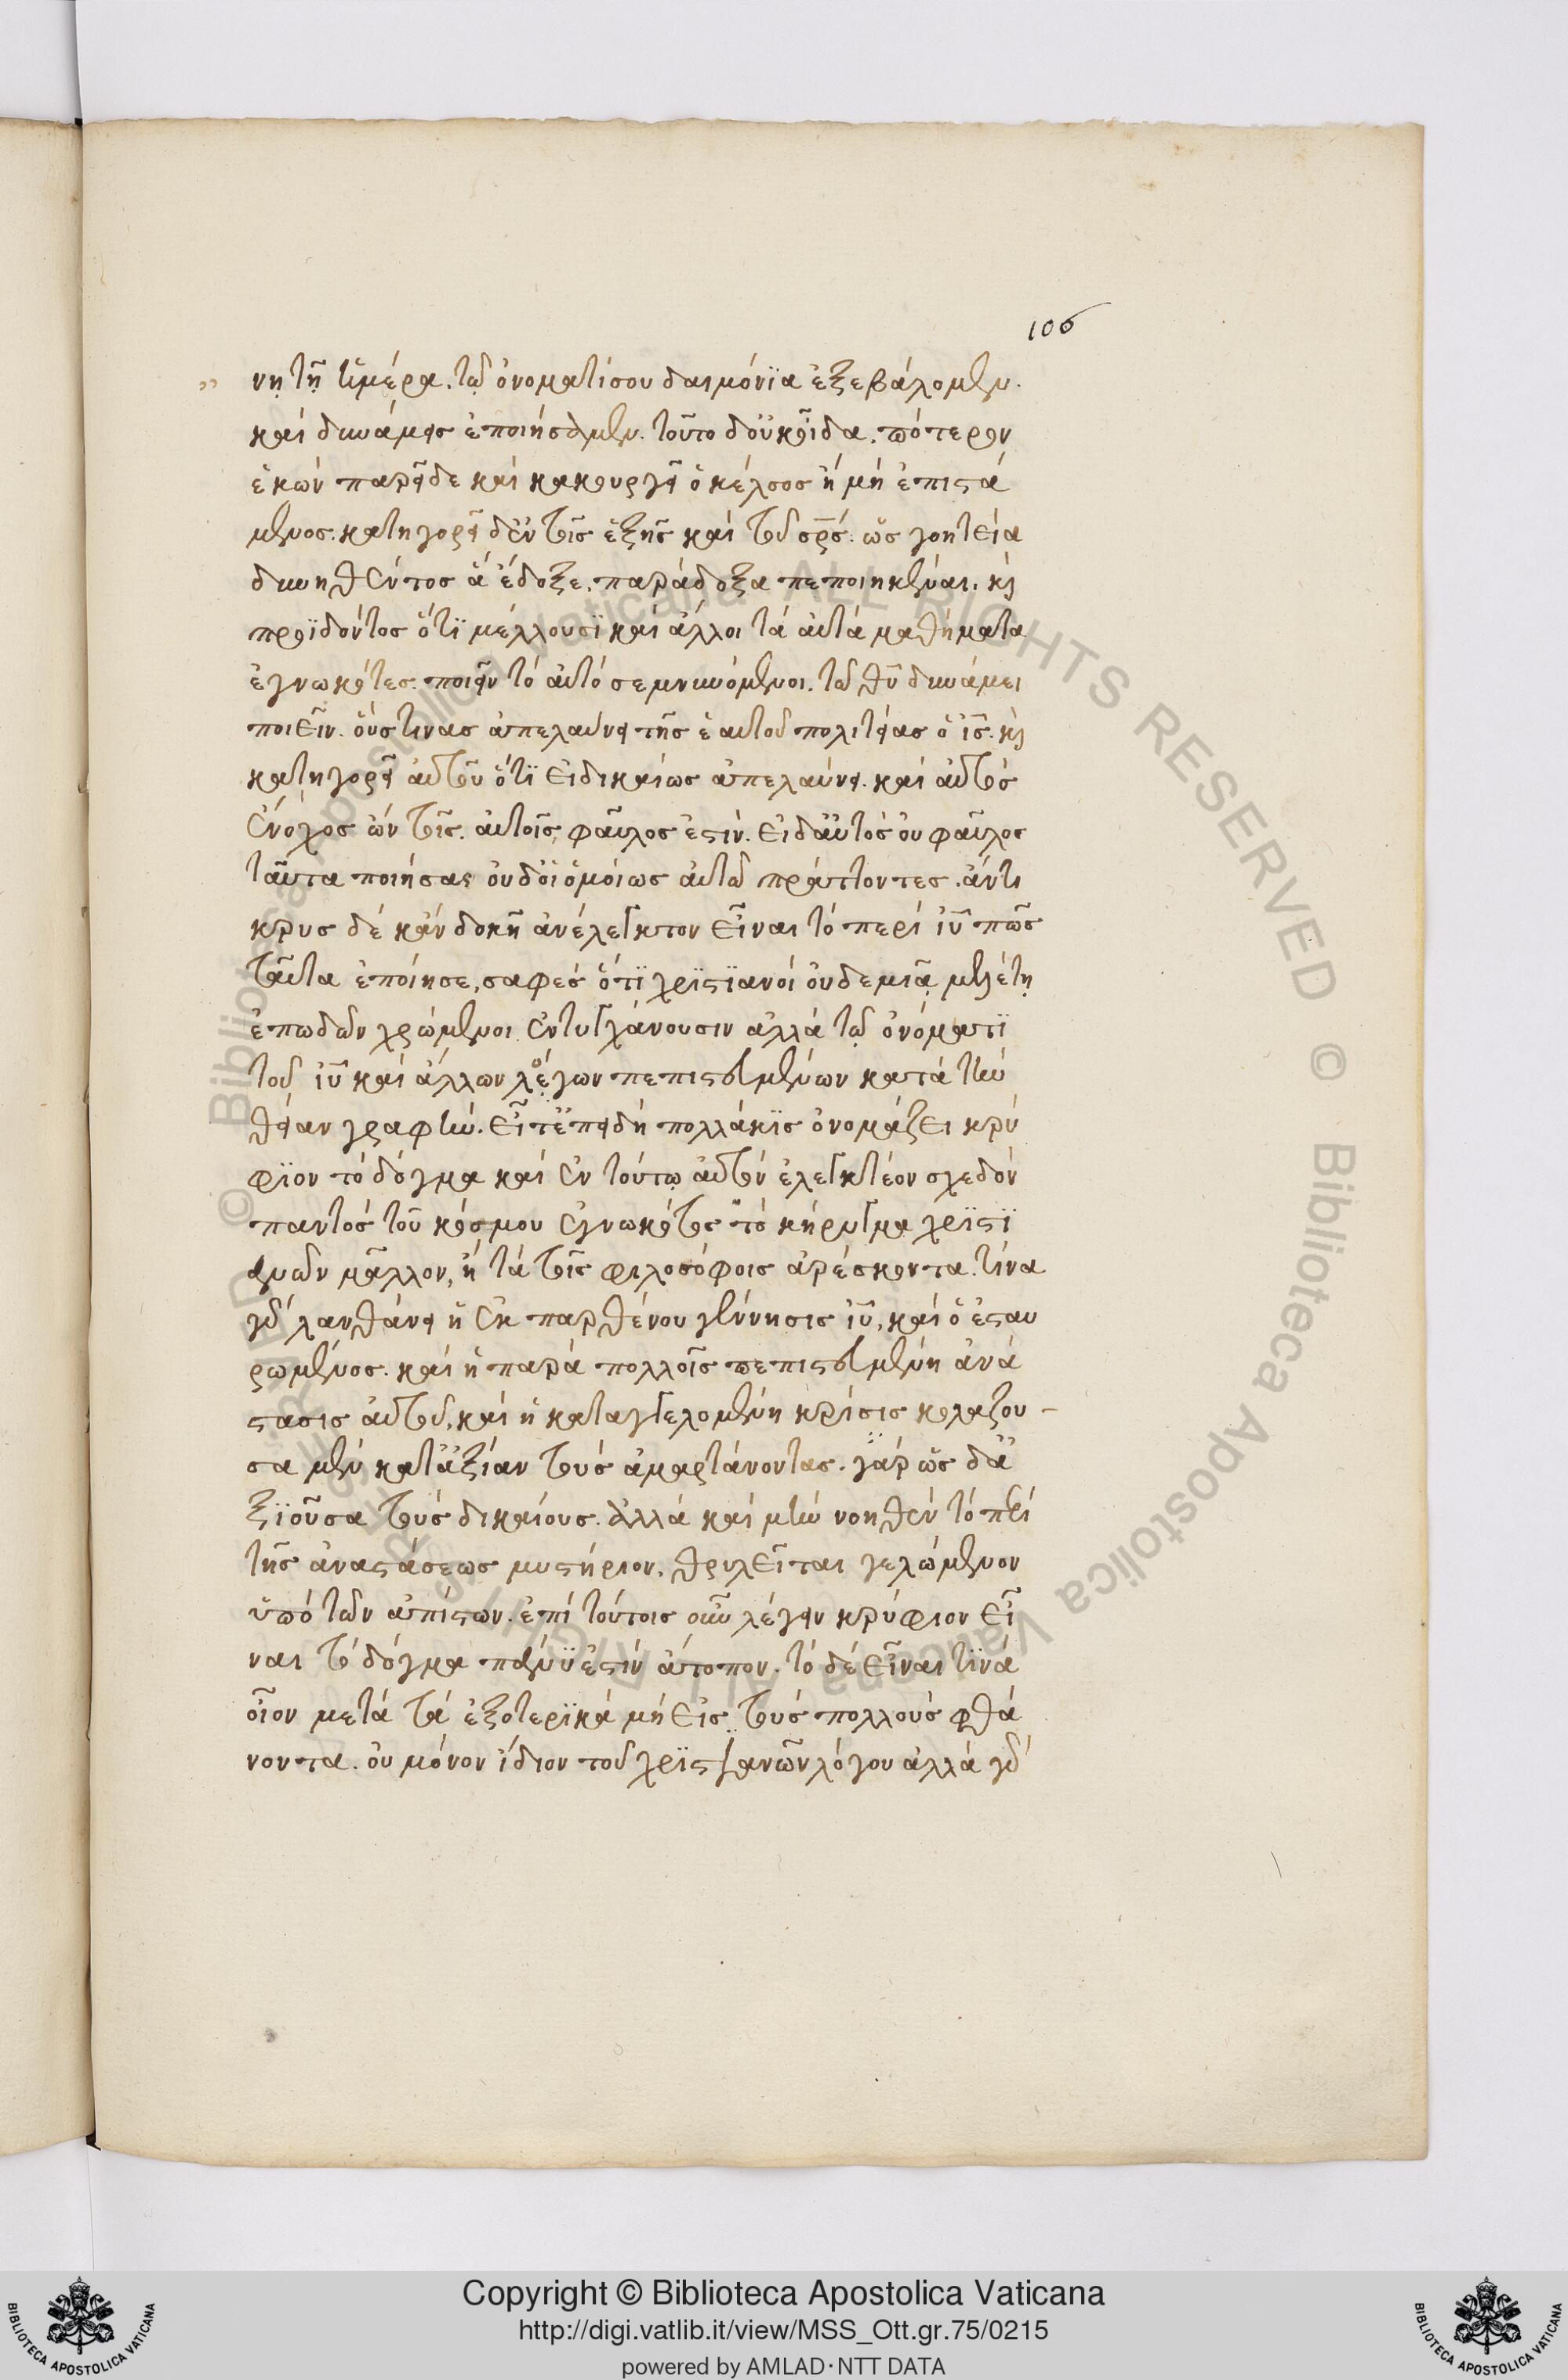 106
„ νῃ τῇ ἡμέρα. τῷ ὀνοματί σου δαιμόνϊα ἐξεβάλομεν.
καὶ δυνάμεις ἐποιήσαμεν. τοῦτο δ' οὐκ οἶδα. πότερον
ἑκὼν παρεῖδε καὶ κακουργεῖ ὁ κέλσος ἢ μὴ ἐπιστά
μενος. κατηγορεῖ δ' ἐν τοῖς ἑξῆς καὶ τοῦ σρς. ὡς γοητεία
δυνηθέντος ἃ ἔδοξε. παράδοξα πεποιηκέναι. καὶ
προϊδόντος ὅτϊ μέλλουσϊ καὶ ἄλλοι τὰ αὐτὰ μαθήματα
ἐγνωκότες. ποιεῖν τὸ αὐτὸ σεμνυνόμενοι. τῶ θυ δυνάμει
ποιεῖν. οὕστινας ἀπελαύνει τῆς ἑαυτοῦ πολιτείας ὁ ις. καὶ
κατηγορεῖ αὐτοῦ ὅτϊ εἰ δικαίως ἀπελαύνει. καὶ αὐτὸς
ἔνοχος ὢν τοῖς. αὐτοῖς φαῦλος ἐστίν. εἰ δ' αὐτὸς οὐ φαῦλος
ταῦτα ποιήσας οὐδ' οἱ ὁμοίως αὐτῶ πράττοντες. ἄντι
κρυς δὲ κἂν δοκῇ ἀνέλεγκτον εἶναι τὸ περὶ ιυ πῶς
ταῦτα ἐποίησε, σαφὲς ὅτϊ χρϊστϊανοὶ οὐδεμιᾷ μελέτῃ
ἐπωδῶν χρώμενοι ἐντυγχάνουσιν ἀλλὰ τῷ ὀνόματϊ
τοῦ ιυ καὶ ἄλλων λόγων πεπιστευμένων κατὰ τὴν
θείαν γραφήν. εἶτ' ἐπειδὴ πολλάκϊς ὀνομάζει κρύ
φϊον τὸ δόγμα καὶ ἐν τούτῳ αὐτὸν ἐλεγκτέον σχεδὸν
παντὸς τοῦ κόσμου ἐγνωκότος τὸ κήρυγμα χρϊστϊ
ανῶν μᾶλλον, ἢ τὰ τοῖς φιλοσόφοις ἀρέσκοντα. τίνα
γὰρ λανθάνει ἡ ἐκ παρθένου γέννησις ιυ, καὶ ὁ ἐσταυ
ρωμένος. καὶ ἡ παρὰ πολλοῖς πεπιστευμένη ἀνά
στασις αὐτοῦ, καὶ ἡ καταγγελομένη κρίσις κολάζου-
σα μὲν κατ' ἀξίαν τοὺς ἁμαρτάνοντας. γὰρ ὡς δ' ἀ
ξϊοῦσα τοὺς δικαίους. ἀλλὰ καὶ μὴν νοηθὲν τὸ περὶ
τῆς ἀναστάσεως μυστήριον, θρυλεῖται γελώμενον
ὑπὸ τῶν ἀπίστων. ἐπὶ τούτοις οὖν λέγειν κρύφιον εἶ
ναι τὸ δόγμα πάνυ ἐστὶν ἄτοπον. τὸ δὲ εἶναι τϊνὰ
οἷον μετὰ τὰ ἐξοτερϊκὰ μὴ εἰς τοὺς πολλοὺς φθά
νοντα. οὐ μόνον ἴδιον τοῦ χρϊστϊανῶν λόγου ἀλλὰ γὰρ
Copyright © Biblioteca Apostolica Vaticana
http://digi.vatlib.it/view/MSS_Ott.gr.75/0215
powered by AMLAD·NTT DATA